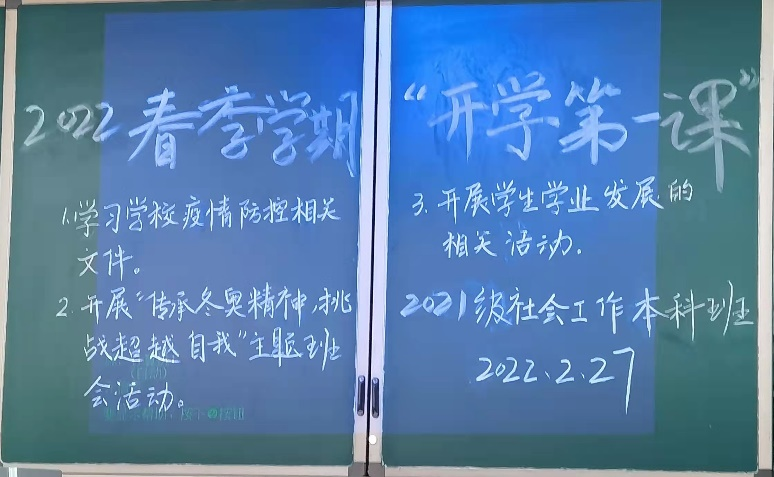 2022春季学期 “开学第一课”
1.学习学校疫情防控相关
文件。
2.开展“传承冬奥精神,挑
战超越自我”主题班
会活动。
3.开展学生学业发展的
相关活动.
2021级社会工作本科班
2022.2.27